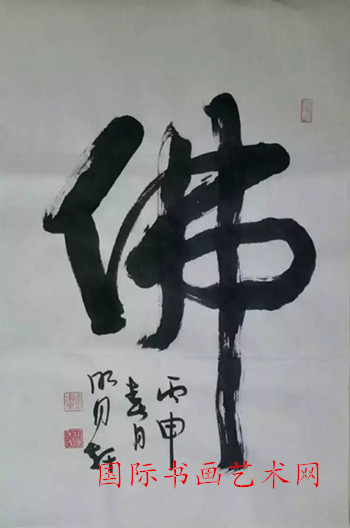 佛
丙申
春月
明月轩
国际书画艺术网